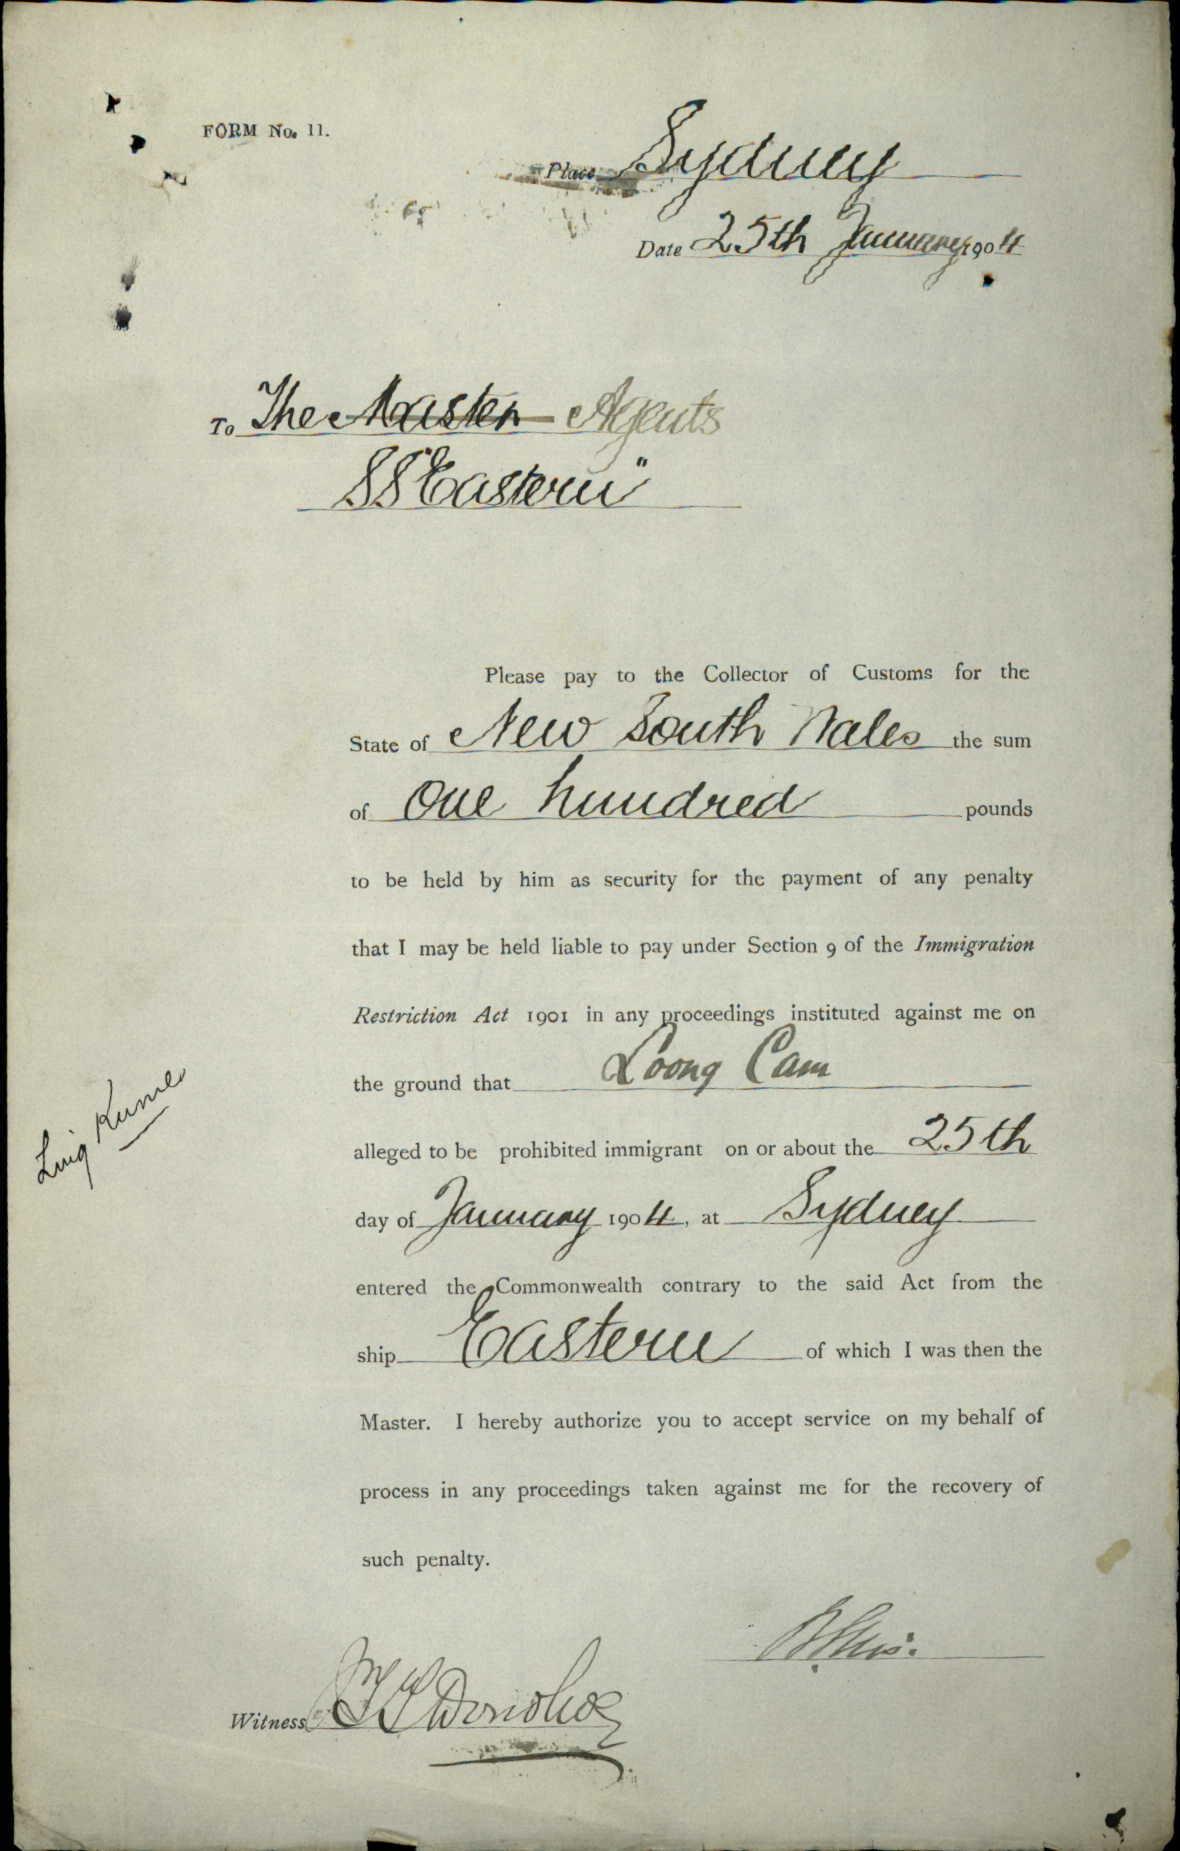 FORM No. 11.
Place Sydney
Date 25th January 1904
To The Master Agents
SS "Eastern"
Please pay to the Collector of Customs for the
State of New South Wales the sum
of One hundred pounds
to be held by him as security for the payment of any penalty
that I may be held liable to pay under Section 9 of the Immigration
Restriction Act 1901 in any proceedings instituted against me on
the ground that Loong Cam
alleged to be prohibited immigrant on or about the 25th
day of January 1904, at Sydney
entered the Commonwealth contrary to the said Act from the
ship Eastern of which I was then the
Master. I hereby authorize you to accept service on my behalf of
process in any proceedings taken against me for the recovery of
such penalty.
Witness Donohoe